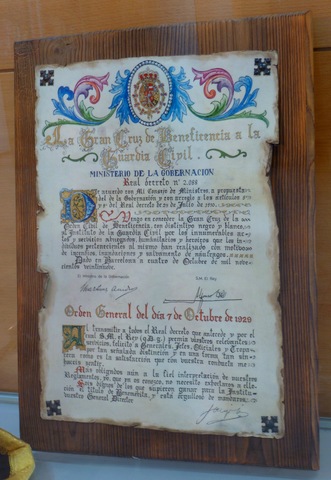 La Gran Cruz de Beneficencia a la
Guardia Civil.
MINISTERIO DE LA GOBERNACION
Real decreto nº 2.098
De acuerdo con Mi Consejo de Ministros, a propuesta
del de la Gobernación y con arreglo a los artículos
y del Real decreto de 29 de Julio de 1910
Vengo en conceder la Gran Cruz de la
Orden Civil de Beneficencia, con distintivo negro y blanco,
al Instituto de la Guardia Civil por los innumerables actos
y servicios abnegados, humanitarios y heroicos que los in-
dividuos pertenecientes al mismo han realizado con motivo
de incendios, inundaciones y salvamento de náufragos.
Dado en Barcelona a cuatro de Octubre de mil nove-
cientos veintinueve.
El Ministro de la Gobernación
Orden General del día 7 de Octubre de 1929
Al transmitir a todos el Real decreto que antecede y por el
cual S.M. el Rey (q.D.g.) premia vuestros relevantes
servicios, felicito a Generales, Jefes, Oficiales y Tropa
por tan señalada distinción y en una forma tan sin-
cera como es la satisfacción que con vuestra conducta me
hacéis sentir.
Más obligados aún a la fiel interpretación de nuestros
Reglamentos, ya que os conozco, no necesito exhortaros a ello.
Sois dignos de los que supieron ganar para la Institu-
ción el título de Benemérita, y está orgulloso de mandaros,
vuestro General Director